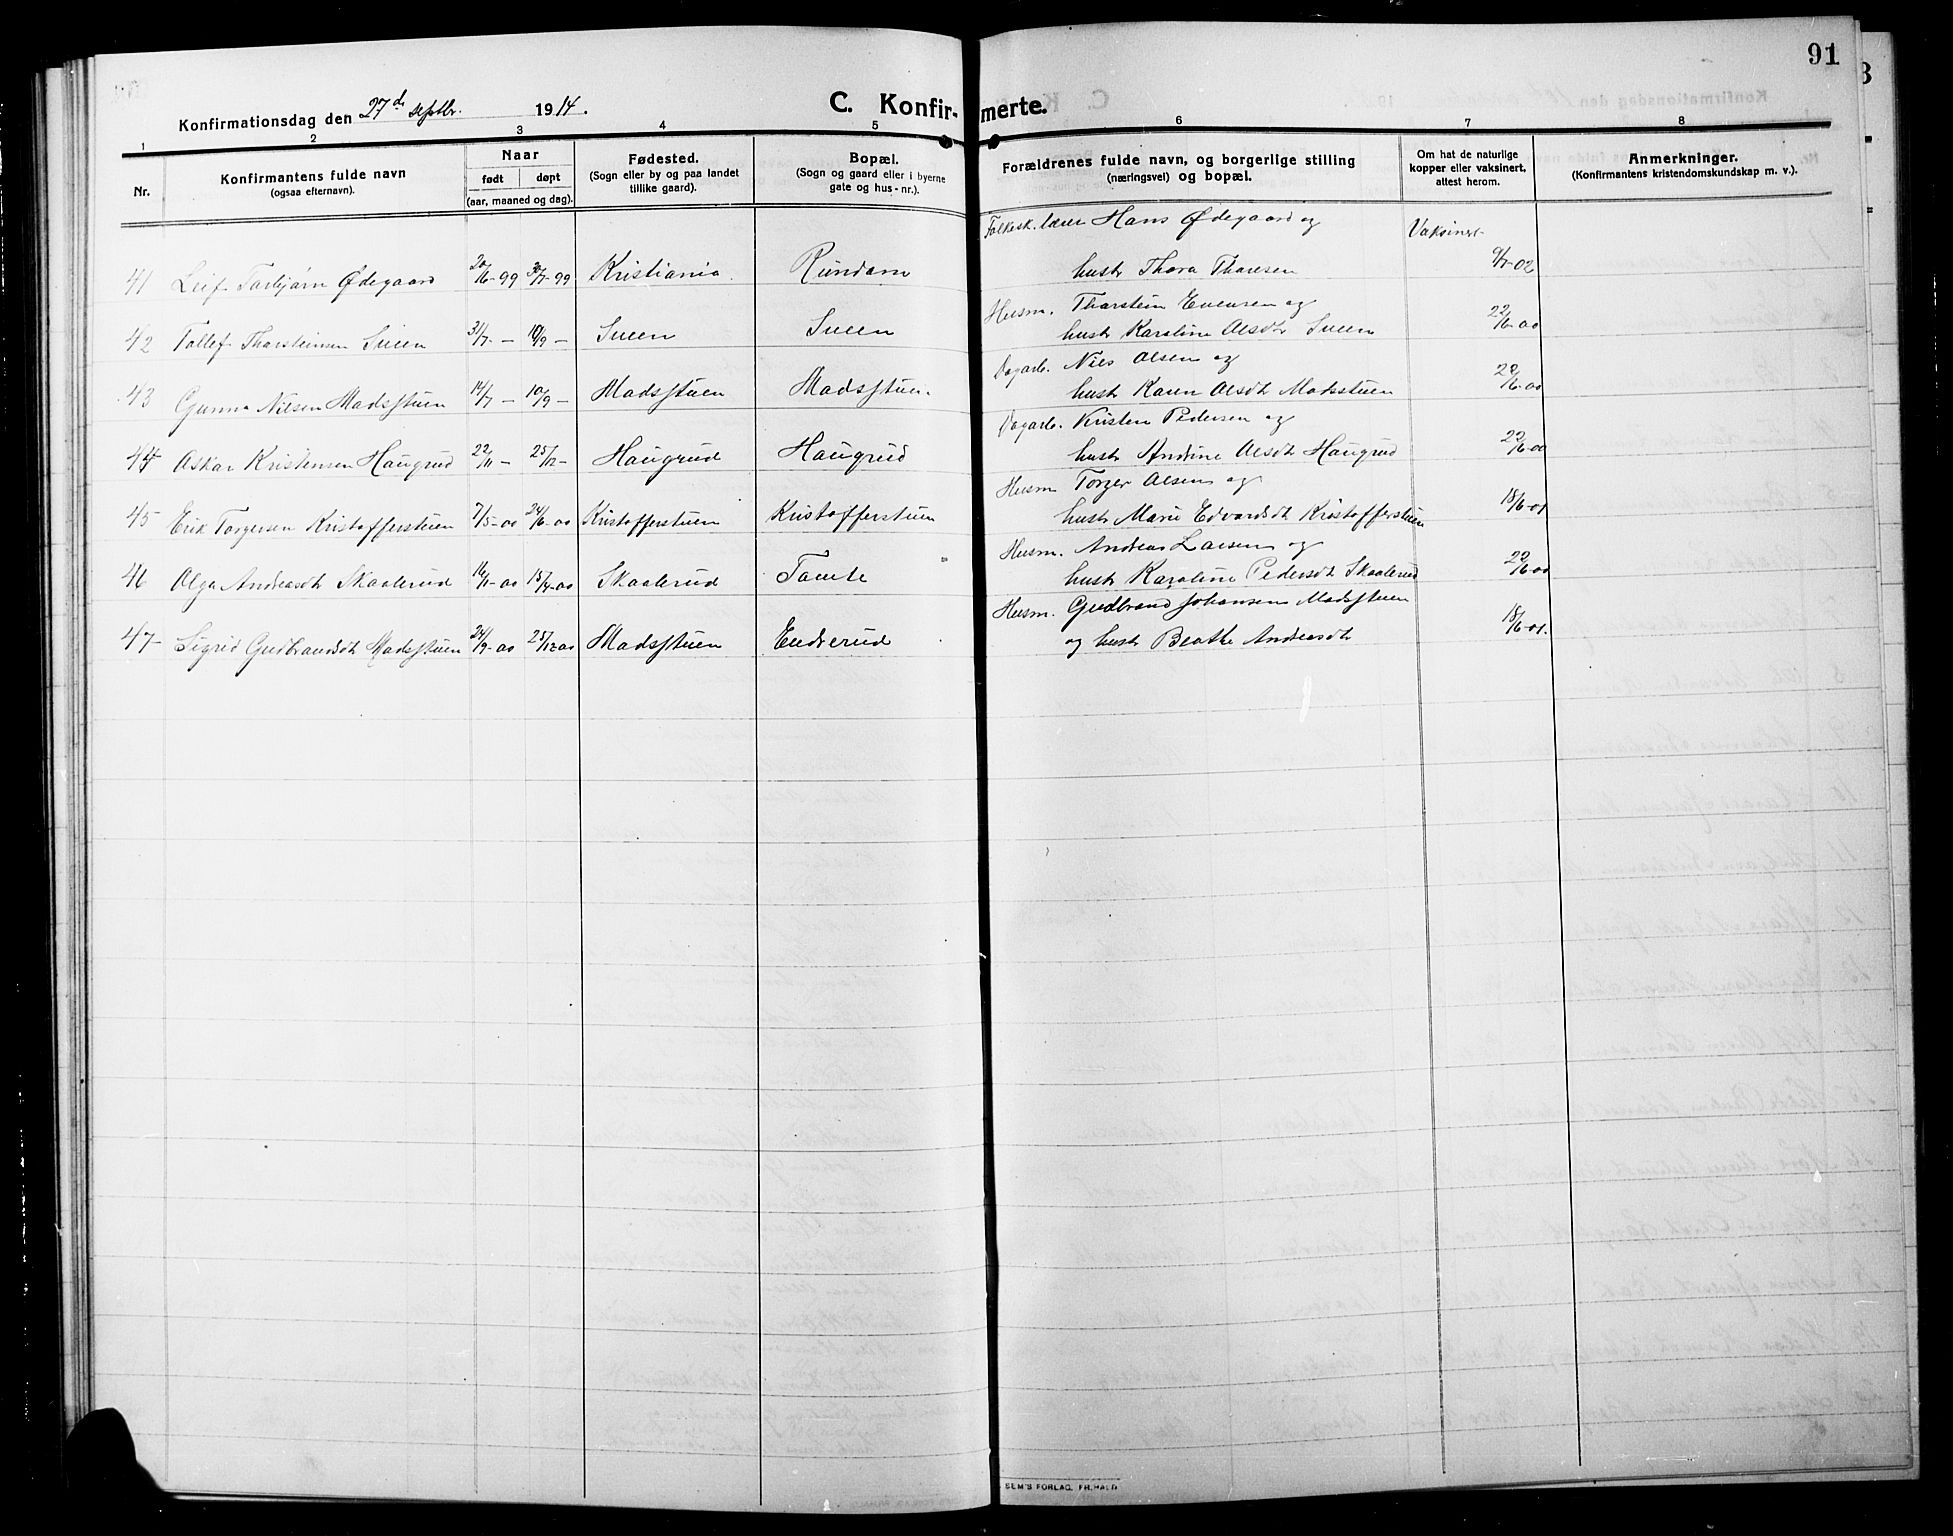 91
Konfirmationsdag den 27de septbr. 1914.
C. Konfirmerte.
1 2 3 4 5 6 7 8
Nr.
Konfirmantens fulde navn
(ogsaa efternavn).
Naar
født døpt
(aar, maaned og dag).
Fødested.
(Sogn eller by og paa landet
tillike gaard).
Bopæl.
(Sogn og gaard eller i byerne
gate og hus-nr.).
Forældrenes fulde navn, og borgerlige stilling
(næringsvei) og bopæl.
Om hat de naturlige
kopper eller vaksinert,
attest herom.
Anmerkninger.
(Konfirmantens kristendomskundskap m. v.).
Folkesk. lærer Hans Ødegaard og Vaksinert
41 Leif Torbjørn Ødegaard 20/6-99 30/7-99 Kristiania. Rundom hustr Thora Thoresen 9/7-02
Husm. Thorstein Evensen og
42 Tollef Thorsteinsen Sveen 31/7 - 10/9 - Sveen Sveen hustr Karoline Olsdtr Sveen 22/6-00
Dagarb. Nils Olsen og
43 Gunna Nilsen Madsstuen 14/7 - 10/9 - Madsstuen Madsstuen. hustr Karen Olsdtr Madsstuen 22/6-00
Dagarb. Kristen Pedersen og
44 Oskar Kristensen Haugrud 22/11 - 25/12 - Haugrud Haugrud hustr Andrine Olsdtr Haugrud 22/6-00
Husm Torger Olsen og
45 Erik Torgersen Kristofferstuen 7/5-00 24/6-00 Kristofferstuen Kristofferstuen hustr Marie Edvardsdtr Kristofferstuen 18/6-01
Husm. Andreas Larsen og
46 Olga Andreasdtr Skaalerud 16/1-00 15/4-00 Skaalerud Tomte hustr Karoline Pedersdtr Skaalerud 22/6-00
Husm. Gudbrand Johansen Madsstuen
47 Sigrid Gudbrandsdtr Madsstuen 24/9-00 25/12-00 Madsstuen Endrerud og hustr Beathe Andreasdtr 18/6-01.
SEM'S FORLAG, FR.HALD